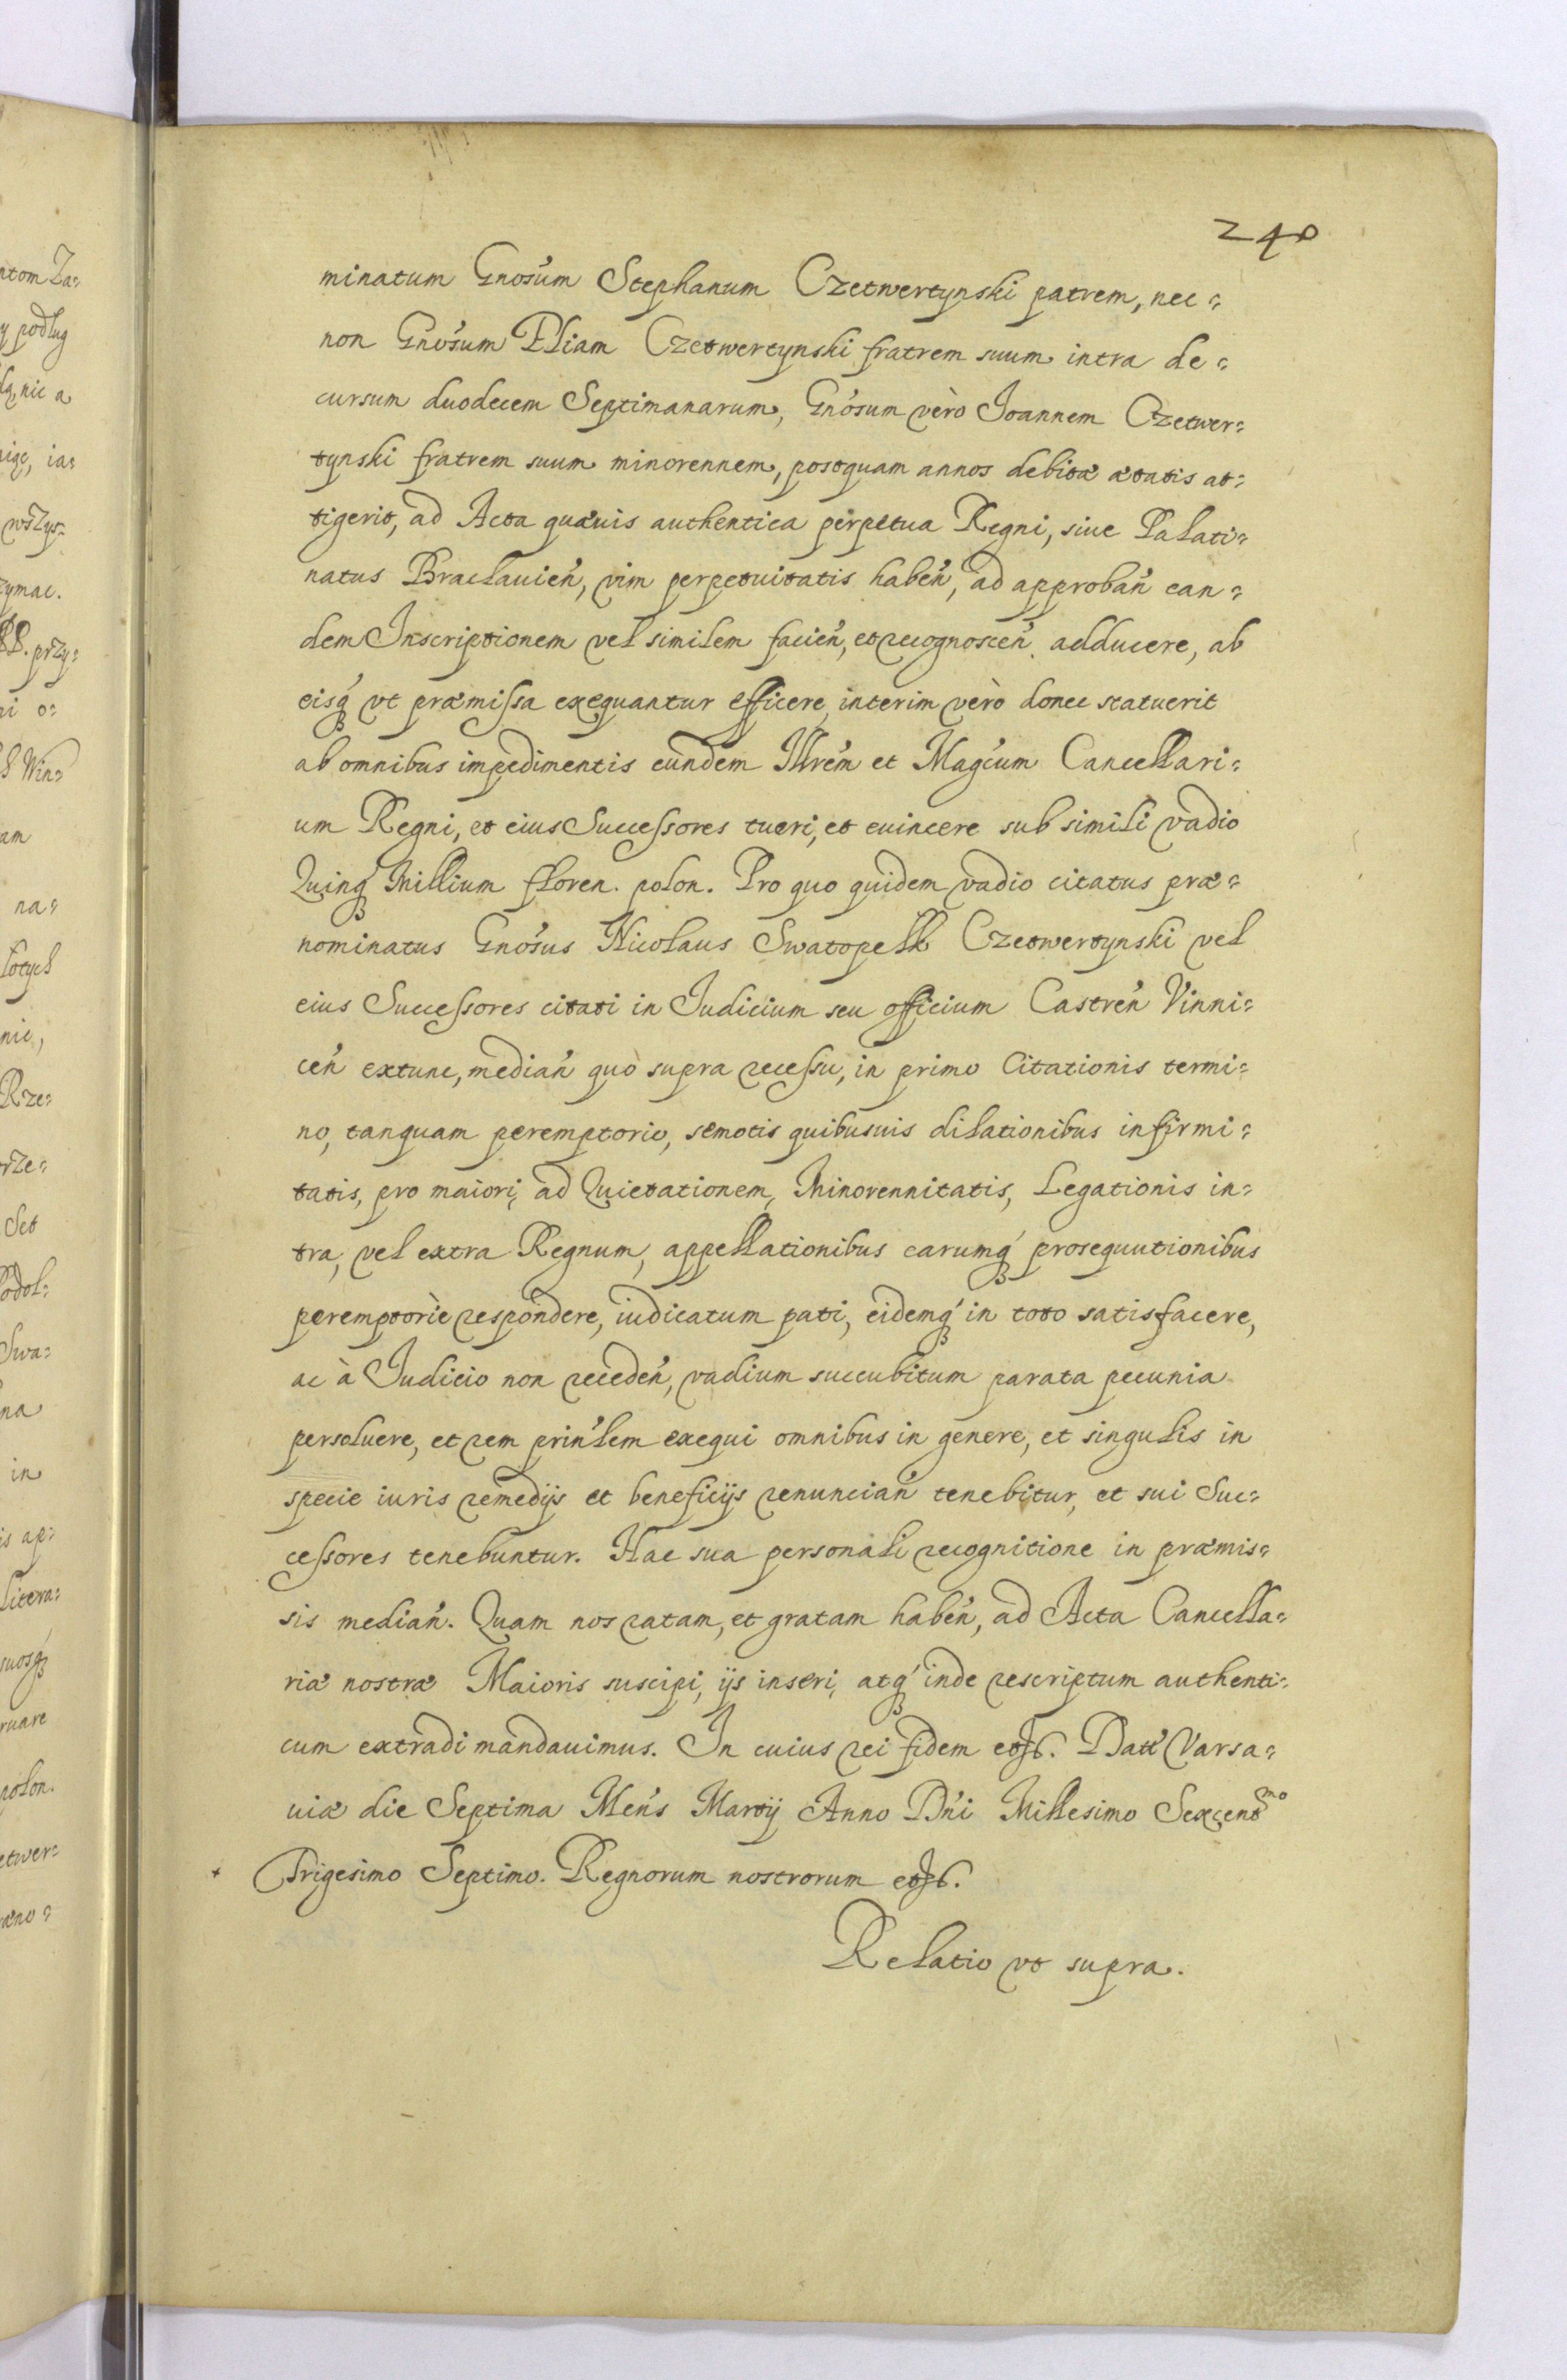 240
minatum Gnos'um Stephanum Czetwertynski patrem, nec=
non Gnos'um Eliam Czetwertynski fratrem suum intra de=
cursum duodecem Septimanarum, Gnos'um vèro Joannem Czetwer=
tynski fratrem suum minorennem, postquam annos debitæ ætatis at=
tigerit, ad Acta quævis authentica perpetua Regni, siue Palati=
natus Braclauien', vim perpetuitatis haben', ad approban' ean=
dem Inscriptionem vel similem facien', et recognoscen' adducere, ab
eisq' vt præmissa exequantur efficere, interim vèrò donec statuerit
ab omnibus impedimentis eundem Illrem et Magcum Cancellari=
um Regni, et eius Successores tueri, et euincere sub simili vadio
Quinq' Millium floren. polon. Pro quo quidem vadio citatus præ=
nominatus Gnos'us Nicolaus Swatopelk Czetwertynski vel
eius Successores citati in Judicium seu officium Castren' Vinni=
cen' extunc, median' quò supra recessu, in primo Citationis termi=
no, tanquam peremptorio, semotis quibusuis dilationibus infirmi=
tatis, pro maiori, ad Quietationem, Minorennitatis, Legationis in=
tra, vel extra Regnum, appellationibus earumq' prosequutionibus
peremptoriè respondere, iudicatum pati, eidemq' in toto satisfacere,
ac à Judicio non receden', vadium succubitum parata pecunia
persoluere, et rem prin'lem exequi omnibus in genere, et singulis in
specie iuris remedijs et beneficijs renuncian' tenebitur, et sui Suc=
cessores tenebuntur. Hac sua personali recognitione in præmis=
sis median'. Quam nos ratam, et gratam haben', ad Acta Cancella=
riæ nostræ Maioris suscipi, ijs inseri, atq' inde rescriptum authenti=
cum extradi mandauimus. In cuius rei fidem etc. Dat' Varsa=
uiæ die Septima Men's Martij Anno Dn'i Millesimo Sexcent^mo
+ Trigesimo Septimo. Regnorum nostrorum etc.
Relatio vt supra.